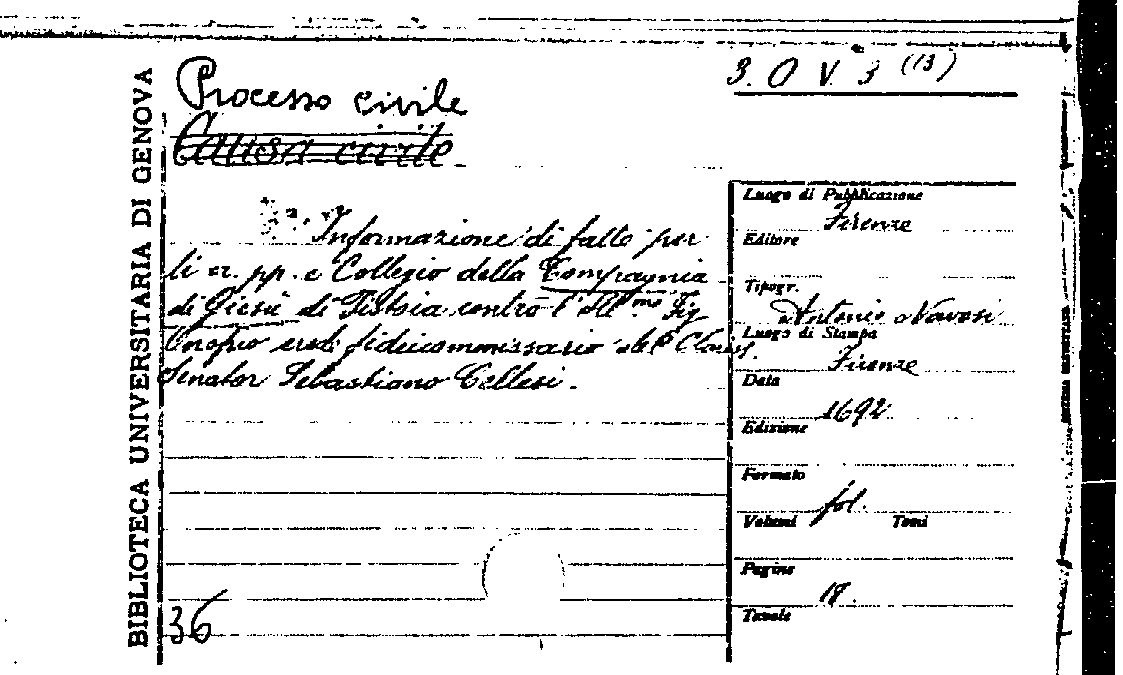 BIBLIOTECA UNIVERSITARIA DI GENOVA
3. O V 3 (13)
Processo civile
Causa civile
Informazione di fatto per
li rr. pp. e Collegio della Compagnia
di Giesù di Pistoia contro l'Ill.mo Sig
erede fideicommissario del Clariss.
Senator Sebastiano Cellesi.
36
Luogo di Pubblicazione
Firenze
Editore
Tipogr.
Antonio Navesi
Luogo di Stampa
Firenze
Data
1692
Edizione
Formato
fol.
Volumi Tomi
Pagine
18.
Tavole